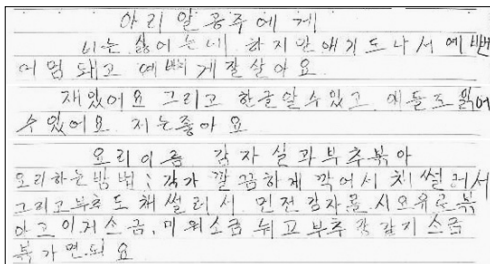 아리알공주에게
너는 싫어는데 하지만 애기도 나서 예뻐
어멈 돼고 예쁘게 잘 살아요
재있어요 그리고 한글 알 수 있고 애들도 읽어
수 있어요 저는 좋아요
요리이름 감자실과 부추볶아
요리하는 방법 : 감가 깔끔하게 깍어서 채 썰러서
그리고 부추도 채 썰러서 먼전 감자를 시오유로 볶
아고 이거 소금, 미워소금 눠고 부추 소금
볶가면 되요